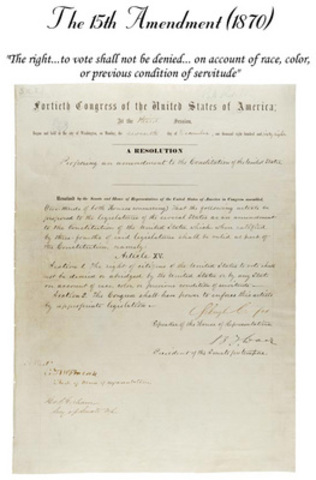 The 15th Amendment (1870)
"The right...to vote shall not be denied... on account of race, color,
or previous condition of servitude"
Fortieth Congress of the United States of America;
At the Session,
Begun and held at the city of Washington, on Monday, the day of December, one thousand eight hundred and sixty-eight
A RESOLUTION
Proposing an amendment to the Constitution of the United States.
Resolved by the Senate and House of Representatives of the United States of America in Congress assembled,
(two-thirds of both Houses concurring) That the following article be
proposed to the legislatures of the several States as an amendment
to the Constitution of the United States which when ratified
by three-fourths of said legislatures shall be valid as part of
the Constitution, namely:
Article XV.
Section 1. The right of citizens of the United States to vote shall
not be denied or abridged by the United States or by any State
on account of race, color, or previous condition of servitude—
Section 2. The Congress shall have power to enforce this article
by appropriate legislation—
Speaker of the House of Representatives
President of the Senate pro tempore.
Clerk of House of Representatives